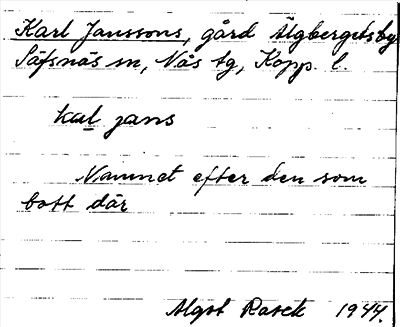 Karl Janssons, gård Älgbergetsby
Säfsnäs sn, Nås tg, Kopp. l.
kal jans
Namnet efter den som
bott där
Algot Rasck 1944.